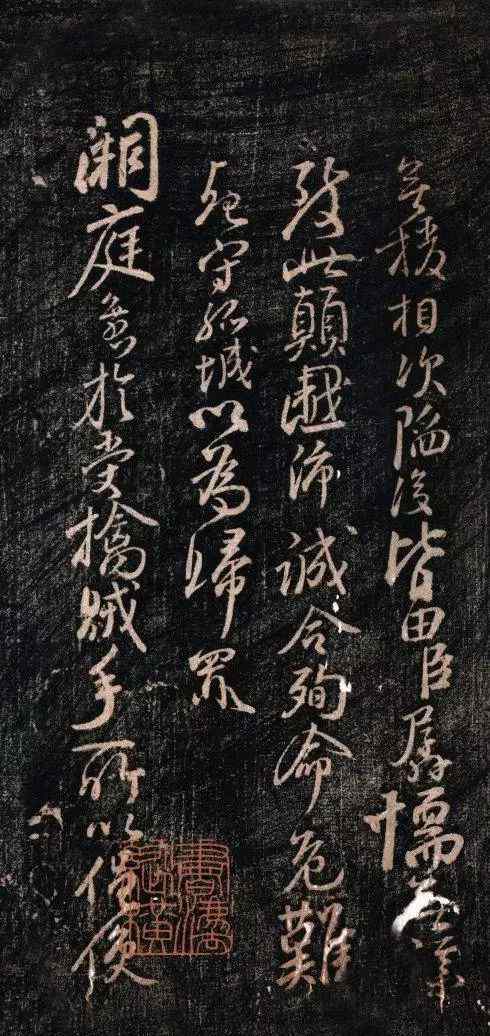 相次陷沒皆由臣孱懦無策
致此顛誠合殉命危難
守孤城以為歸罪
闕庭愈於受擒賊手所以僶俛